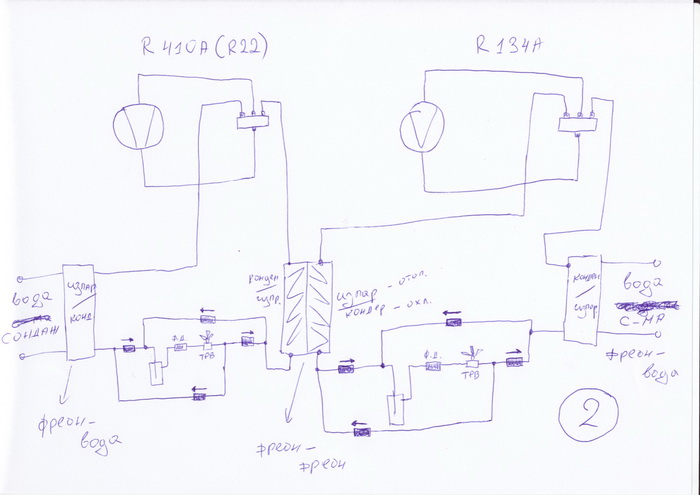 R 410A (R22)
R 134A
вода
СОНДАЖ
испар
конд.
конден
испр.
испар - отоп.
кондер - охл.
Ф.Д.
ТРВ
Ф.Д.
ТРВ
конден
испар
вода
С-МА
фреон-
вода
фреон-
вода
фреон-
фреон
2